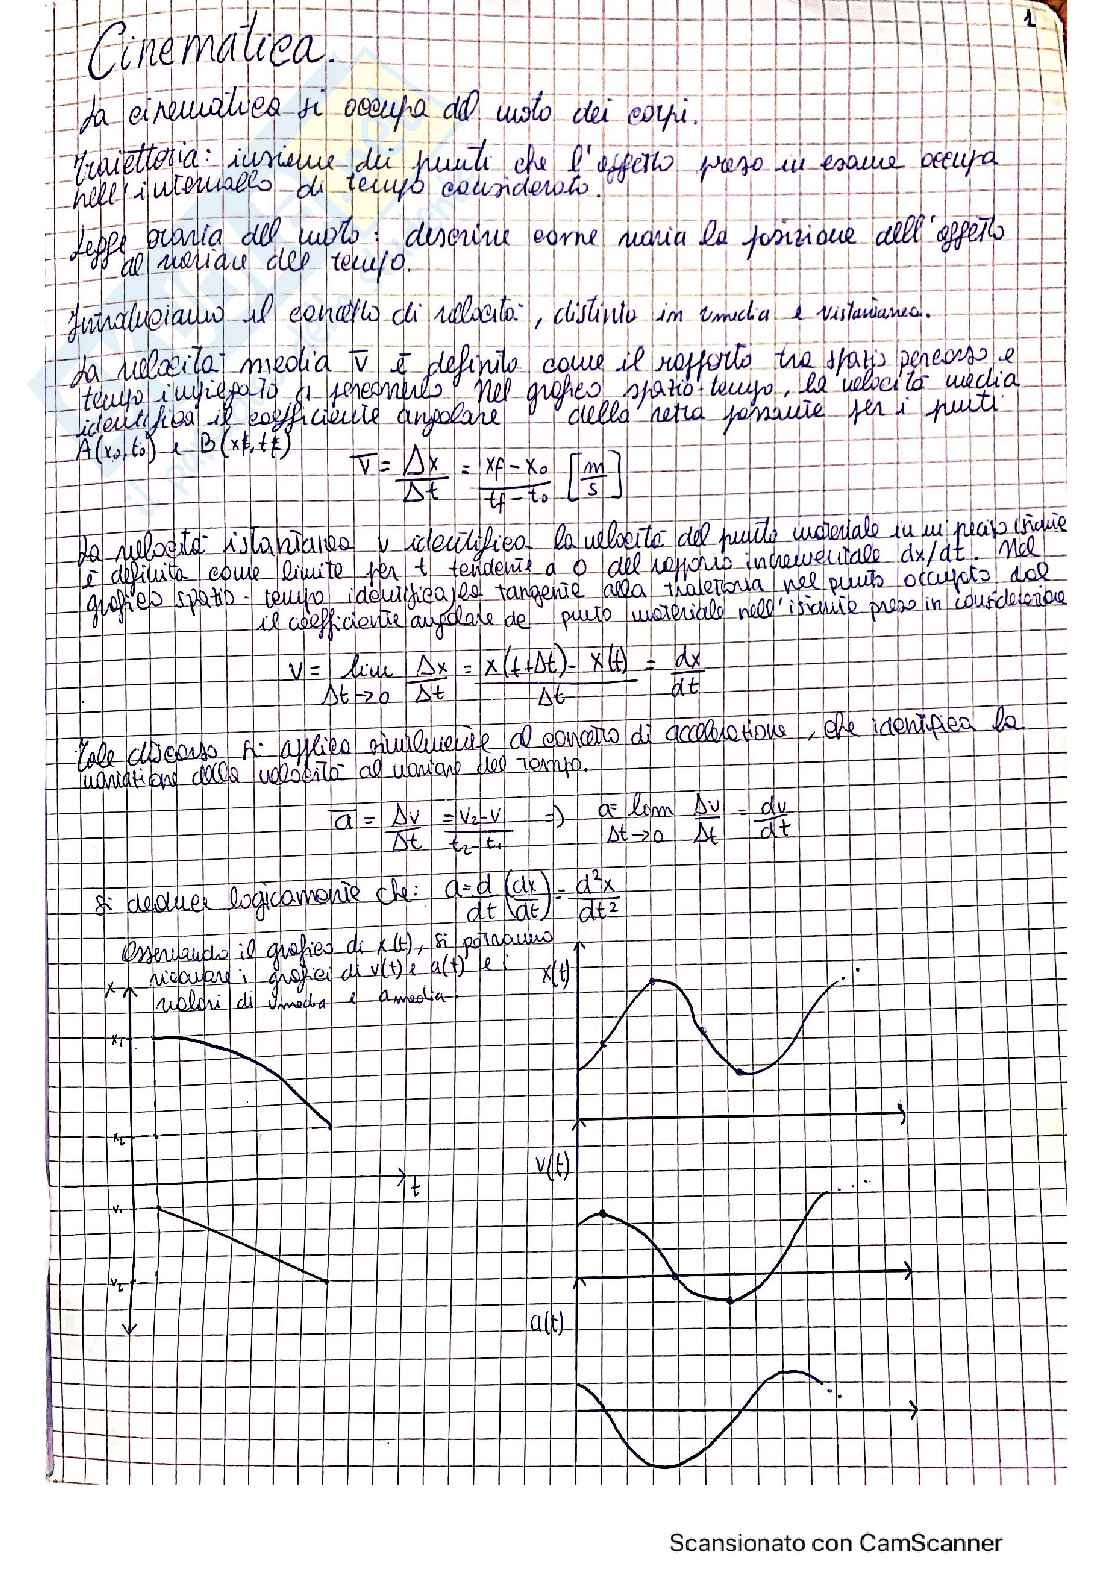 1
Cinematica.
La cinematica si occupa del moto dei corpi.
Traiettoria: insieme dei punti che l'oggetto preso in esame occupa
nell'intervallo di tempo considerato.
Legge oraria del moto: descrive come varia la posizione dell'oggetto
al variare del tempo.
Introduciamo il concetto di velocità, distinto in vmedia e vistantanea.
La velocità media v̅ è definito come il rapporto tra spazio percorso e
tempo impiegato a percorrerlo. Nel grafico spazio-tempo, la velocità media
identifica il coefficiente angolare della retta passante per i punti
A(x₀,t₀) e B(xf,tf)
v̅ = Δx/Δt = xf-x₀/tf-t₀ [m/s]
La velocità istantanea v identifica la velocità del punto materiale in un preciso istante
è definita come limite per t tendente a 0 del rapporto incrementale dx/dt. Nel
grafico spazio-tempo identifica la tangente alla traiettoria nel punto occupato dal
il coefficiente angolare de punto materiale nell'istante preso in considerazione
v = lim Δt→0 Δx/Δt = x(t+Δt)- x(t)/Δt = dx/dt
Tale discorso si applica similmente al concetto di accelerazione, che identifica la
variazione della velocità al variare del tempo.
a̅ = Δv/Δt = v₂-v/t₂-t₁ ⇒ a= lim Δt→0 Δv/Δt = dv/dt
Si deduce logicamente che: a = d/dt (dx/dt) = d²x/dt²
Osservando il grafico di x(t), si potranno
ricavare i grafici di v(t) e a(t) e i
valori di vmedia e amedia.
x
x₁
x₂
t
v₁
v₂
x(t)
v(t)
a(t)
Scansionato con CamScanner